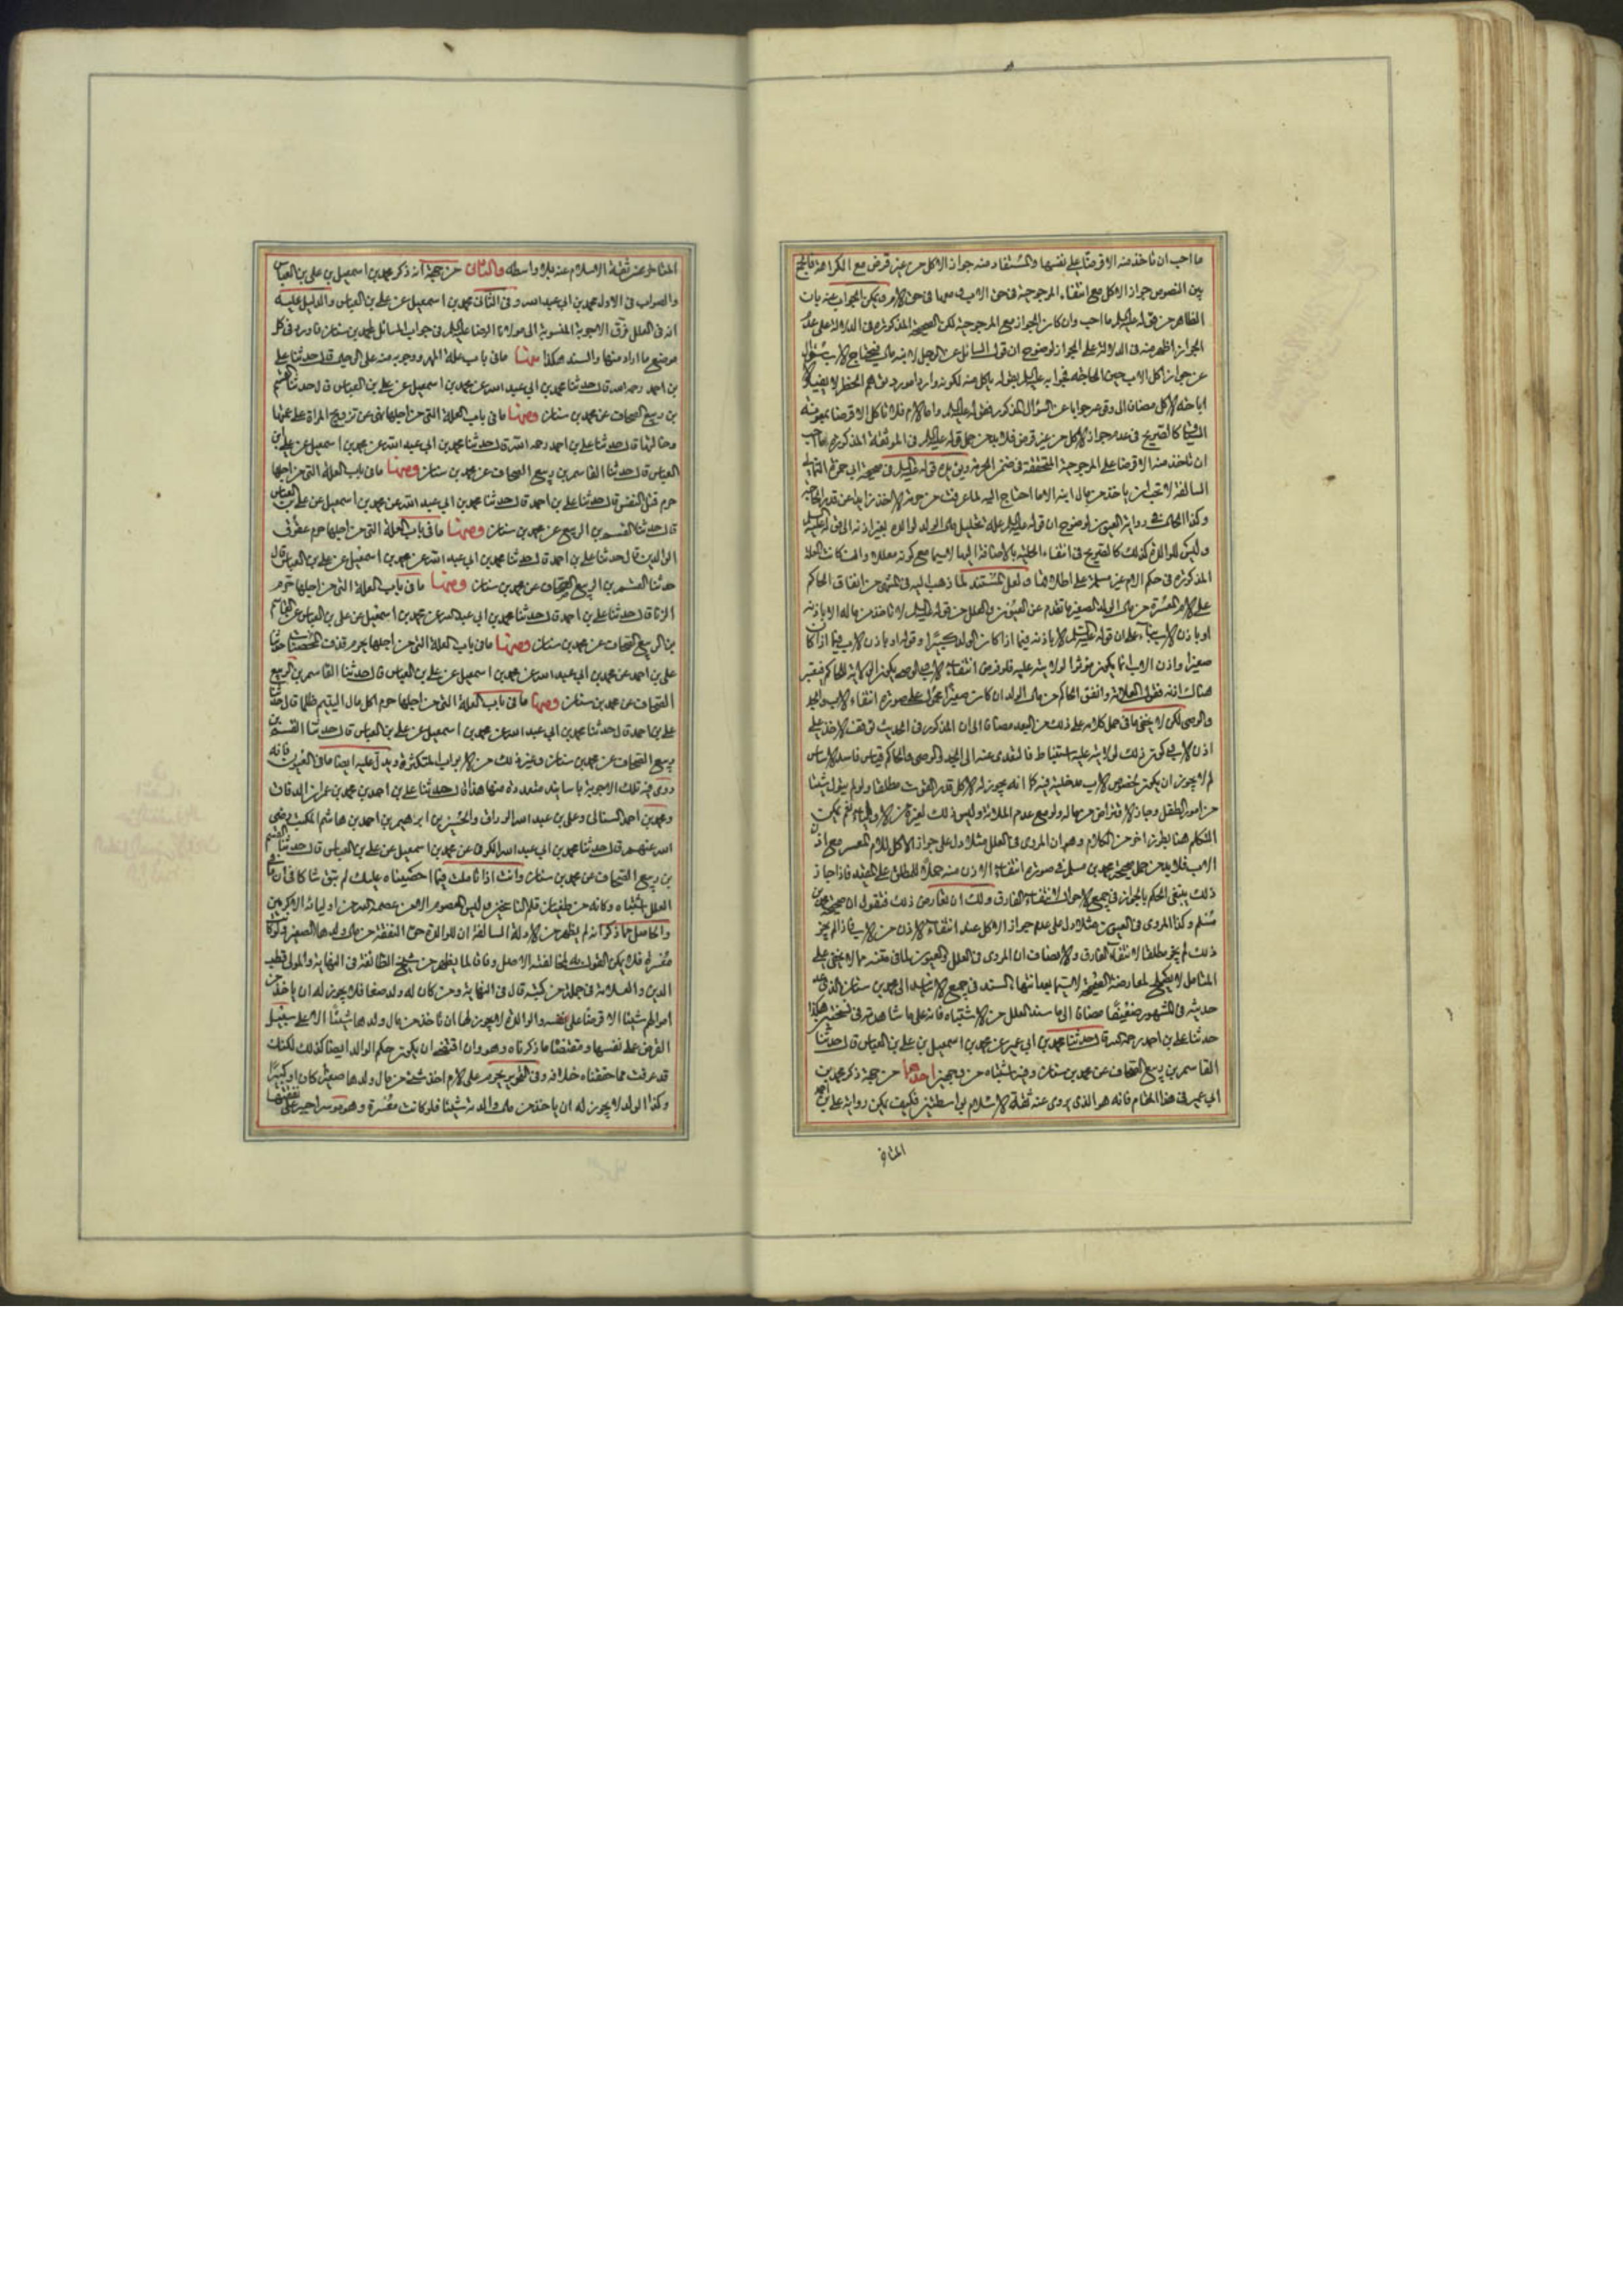 ما احب ان تاخذ منه الا قرضا على نفسها والمستفاد منه جواز الاكل من غير قرض مع الكراهة فالجمع
بين النصوص جواز الاكل مع انتفاء المرجوحية في حق الاب ومعها في حق الام ويمكن الجواب عنه بان
الظاهر من قوله عليه السلام ما احب وان كان الجواز مع المرجوحية لكن الصحيحة المذكورة في الدلالة على عدم
الجواز اظهر منه في الدلالة على الجواز لوضوح ان قول السائل عن الرجل لابنه مال فيحتاج الاب سؤال
عن جواز اكل الاب حين الحاجة فجوابه عليه السلام بقوله ياكل منه لكونه واردا مورد توهم الحظر لا يفيد الا
اباحة الاكل مضافا الى وقوعه جوابا عن السؤال المذكور فقوله عليه السلام واما الام فلا تاكل الا قرضا بمعونة
السياق كالصريح في عدم جواز الاكل من غير قرض فلابد من حمل قوله عليه السلام في الموثقة المذكورة ما احب
ان تاخذ منه الا قرضا على المرجوحية المتحققة في ضمن الحرمة ويؤيده قوله عليه السلام في صحيحة ابي حمزة الثمالي
السالفة لا نحب ان ياخذ من مال ابنه الا ما احتاج اليه لما عرفت من حرمة الاخذ زايدا عن قدر الحاجة
وكذا الحال في رواية العيون لوضوح ان قوله عليه السلام علة تحليل مال الولد لوالده بغير اذنه الى قوله عليه السلام
وليس للوالدة كذلك كالصريح في انتفاء الحلية بالاضافة اليها لا سيما مع كونه معللا وان كانت العلة
المذكورة في حكم الام غير مسلمة على اطلاقها ولعل المستند لما ذهب اليه في المنتهى من انفاق الحاكم
على الام المعسرة من مال الولد الصغير ما تقدم عن العيون والعلل من قوله عليه السلام لا تاخذ من ماله الا باذنه
او باذن الاب بناء على ان قوله عليه السلام الا باذنه فيما اذا كان الولد كبيرا وقوله او باذن الاب فيما اذا كان
صغيرا واذن الاب انما يكون مؤثرا لولايته عليه فلو فرض انتفاء الاب والوصي يكون الولاية للحاكم فيعتبر
هناك اذنه فقول العلامة وانفق الحاكم من مال الولد ان كان صغيرا محمول على صورة انتفاء الاب والجد
والوصي لكن لا يخفى ما في حمل كلامه على ذلك من البعد مضافا الى ان المذكور في الحديث توقف الاخذ على
اذن الاب وكون ذلك لولايته عليه استنباط فالتعدي عنه الى الجد والوصي والحاكم قياس فاسد الاساس
لم لا يجوز ان يكون لخصوص الاب مدخلية فيه كما انه يجوز له الاكل قدر القوت مطلقا ولو لم يتول شيئا
من امور الطفل وجاز الاقتراض من ماله ولو مع عدم الملائة وليس ذلك لغيره من الاولياء نعم يمكن
التكلم هنا بطرز اخر من الكلام وهو ان المروي في العلل مثلا دل على جواز الاكل للام المعسر مع اذن
الاب فلابد من حمل صحيحة محمد بن مسلم في صورة انتفاء الاذن منه حملا للمطلق على المقيد فاذا جاز
ذلك ينبغي الحكم بالجواز في جميع الاحوال لانتفاء الفارق ولك ان تعارض ذلك فنقول ان صحيحة محمد بن
مسلم وكذا المروي في العيون مثلا دل على عدم جواز الاكل عند انتفاء الاذن من الاب فاذا لم يجز
ذلك لم يجز مطلقا لانتفاء الفارق والانصاف ان المروي في العلل والعيون لما في متنه مما لا يخفى على
المتامل لا يصلح لمعارضة الصحيحة لا سيما بعد انتهاء السند في جميع الاسانيد الى محمد بن سنان الذي عد
حديثه في المشهور ضعيفا مضافا الى ما سند العلل من الاشتباه فانه على ما شاهدته في نسختين هكذا
حدثنا علي بن احمد رحمه الله قال حدثنا محمد بن ابي عمير عن محمد بن اسمعيل بن علي بن العباس قال حدثنا
القاسم بن ربيع الصحاف عن محمد بن سنان وفيه اشتباه من وجهين احدهما من جهة ذكر محمد بن
ابي عمير في هذا المقام فانه هو الذي يروي عنه ثقة الاسلام بواسطتين فكيف يمكن رواية علي بن احمد
المتاخر
المتاخر عن ثقة الاسلام عنه بلا واسطة والثاني من جهة انه ذكر محمد بن اسمعيل بن علي بن العباس
والصواب في الاول محمد بن ابي عبد الله وفي الثاني محمد بن اسمعيل عن علي بن العباس والدليل عليه
انه في العلل فرق الاجوبة المنسوبة الى مولانا الرضا عليه السلام في جواب المسائل لمحمد بن سنان فاورد في كل
موضع ما اراد منها والسند هكذا منها ما في باب علة المهر ووجوبه منه على الرجل قال حدثنا علي
بن احمد رحمه الله قال حدثنا محمد بن ابي عبد الله عن محمد بن اسمعيل عن علي بن العباس قال حدثنا القسم
بن ربيع الصحاف عن محمد بن سنان ومنها ما في باب العلة التي من اجلها نهى عن تزويج المراة على عمتها
وخالتها قال حدثنا علي بن احمد رحمه الله قال حدثنا محمد بن ابي عبد الله عن محمد بن اسمعيل عن علي بن
العباس قال حدثنا القاسم بن ربيع الصحاف عن محمد بن سنان ومنها ما في باب العلة التي من اجلها
حرم قتل النفس قال حدثنا علي بن احمد قال حدثنا محمد بن ابي عبد الله عن محمد بن اسمعيل عن علي بن العباس
قال حدثنا القسم بن الربيع عن محمد بن سنان ومنها ما في باب العلة التي من اجلها حرم عقوق
الوالدين قال حدثنا علي بن احمد قال حدثنا محمد بن ابي عبد الله عن محمد بن اسمعيل عن علي بن العباس قال
حدثنا القسم بن الربيع الصحاف عن محمد بن سنان ومنها ما في باب العلة التي من اجلها حرم
الزنا قال حدثنا علي بن احمد قال حدثنا محمد بن ابي عبد الله عن محمد بن اسمعيل عن علي بن العباس عن القاسم
بن الربيع الصحاف عن محمد بن سنان ومنها ما في باب العلة التي من اجلها حرم قذف المحصنات حدثنا
علي بن احمد عن محمد بن ابي عبد الله عن محمد بن اسمعيل عن علي بن العباس قال حدثنا القاسم بن الربيع
الصحاف عن محمد بن سنان ومنها ما في باب العلة التي من اجلها حرم اكل مال اليتيم ظلما قال حدثنا
علي بن احمد قال حدثنا محمد بن ابي عبد الله عن محمد بن اسمعيل عن علي بن العباس قال حدثنا القسم بن
ربيع الصحاف عن محمد بن سنان وغير ذلك من الابواب المتكثرة ويدل عليه ايضا ما في العيون فانه
روى فيه تلك الاجوبة باسانيد متعددة منها هذا قال حدثنا علي بن احمد بن محمد بن عمران الدقاق
ومحمد بن احمد السناني وعلي بن عبد الله الوراق والحسين بن ابرهيم بن احمد بن هاشم المكتب رضي
الله عنهم قال حدثنا محمد بن ابي عبد الله الكوفي عن محمد بن اسمعيل عن علي بن العباس قال حدثنا القسم
بن ربيع الصحاف عن محمد بن سنان وانت اذا تاملت فيما احصيناه عليك لم تبق شاكا في ان ما في
العلل اشتباه وكانه من طغيان قلم الناسخين وليس المعصوم الا من عصمه الله من اوليائه الاكرمين
والحاصل مما ذكر انه لم يظهر من الادلة السالفة ان للوالدة حق النفقة من مال ولدها الصغير ولو كانت
معسرة فلا يمكن القول به لمخالفته الاصل وفاقا لما يظهر من شيخ الطائفة في النهاية والمولى قطب
الدين والعلامة في جملة من كتبه قال في النهاية ومن كان له ولد صغار فلا يجوز له ان ياخذ من
اموالهم شيئا الا قرضا على نفسه والوالدة لا يجوز لها ان تاخذ من مال ولدها شيئا الا على سبيل
القرض على نفسها ومقتضا ما ذكرناه وهو وان اقتضى ان يكون حكم الوالد ايضا كذلك لكنك
قد عرفت مما حققناه خلافه وفي التحرير يحرم على الام اخذ شيء من مال ولدها صغيرا كان او كبيرا
وكذا الولد لا يجوز له ان ياخذ من مال والدته شيئا فلو كانت معسرة وهو موسر اجبر على نفقتها